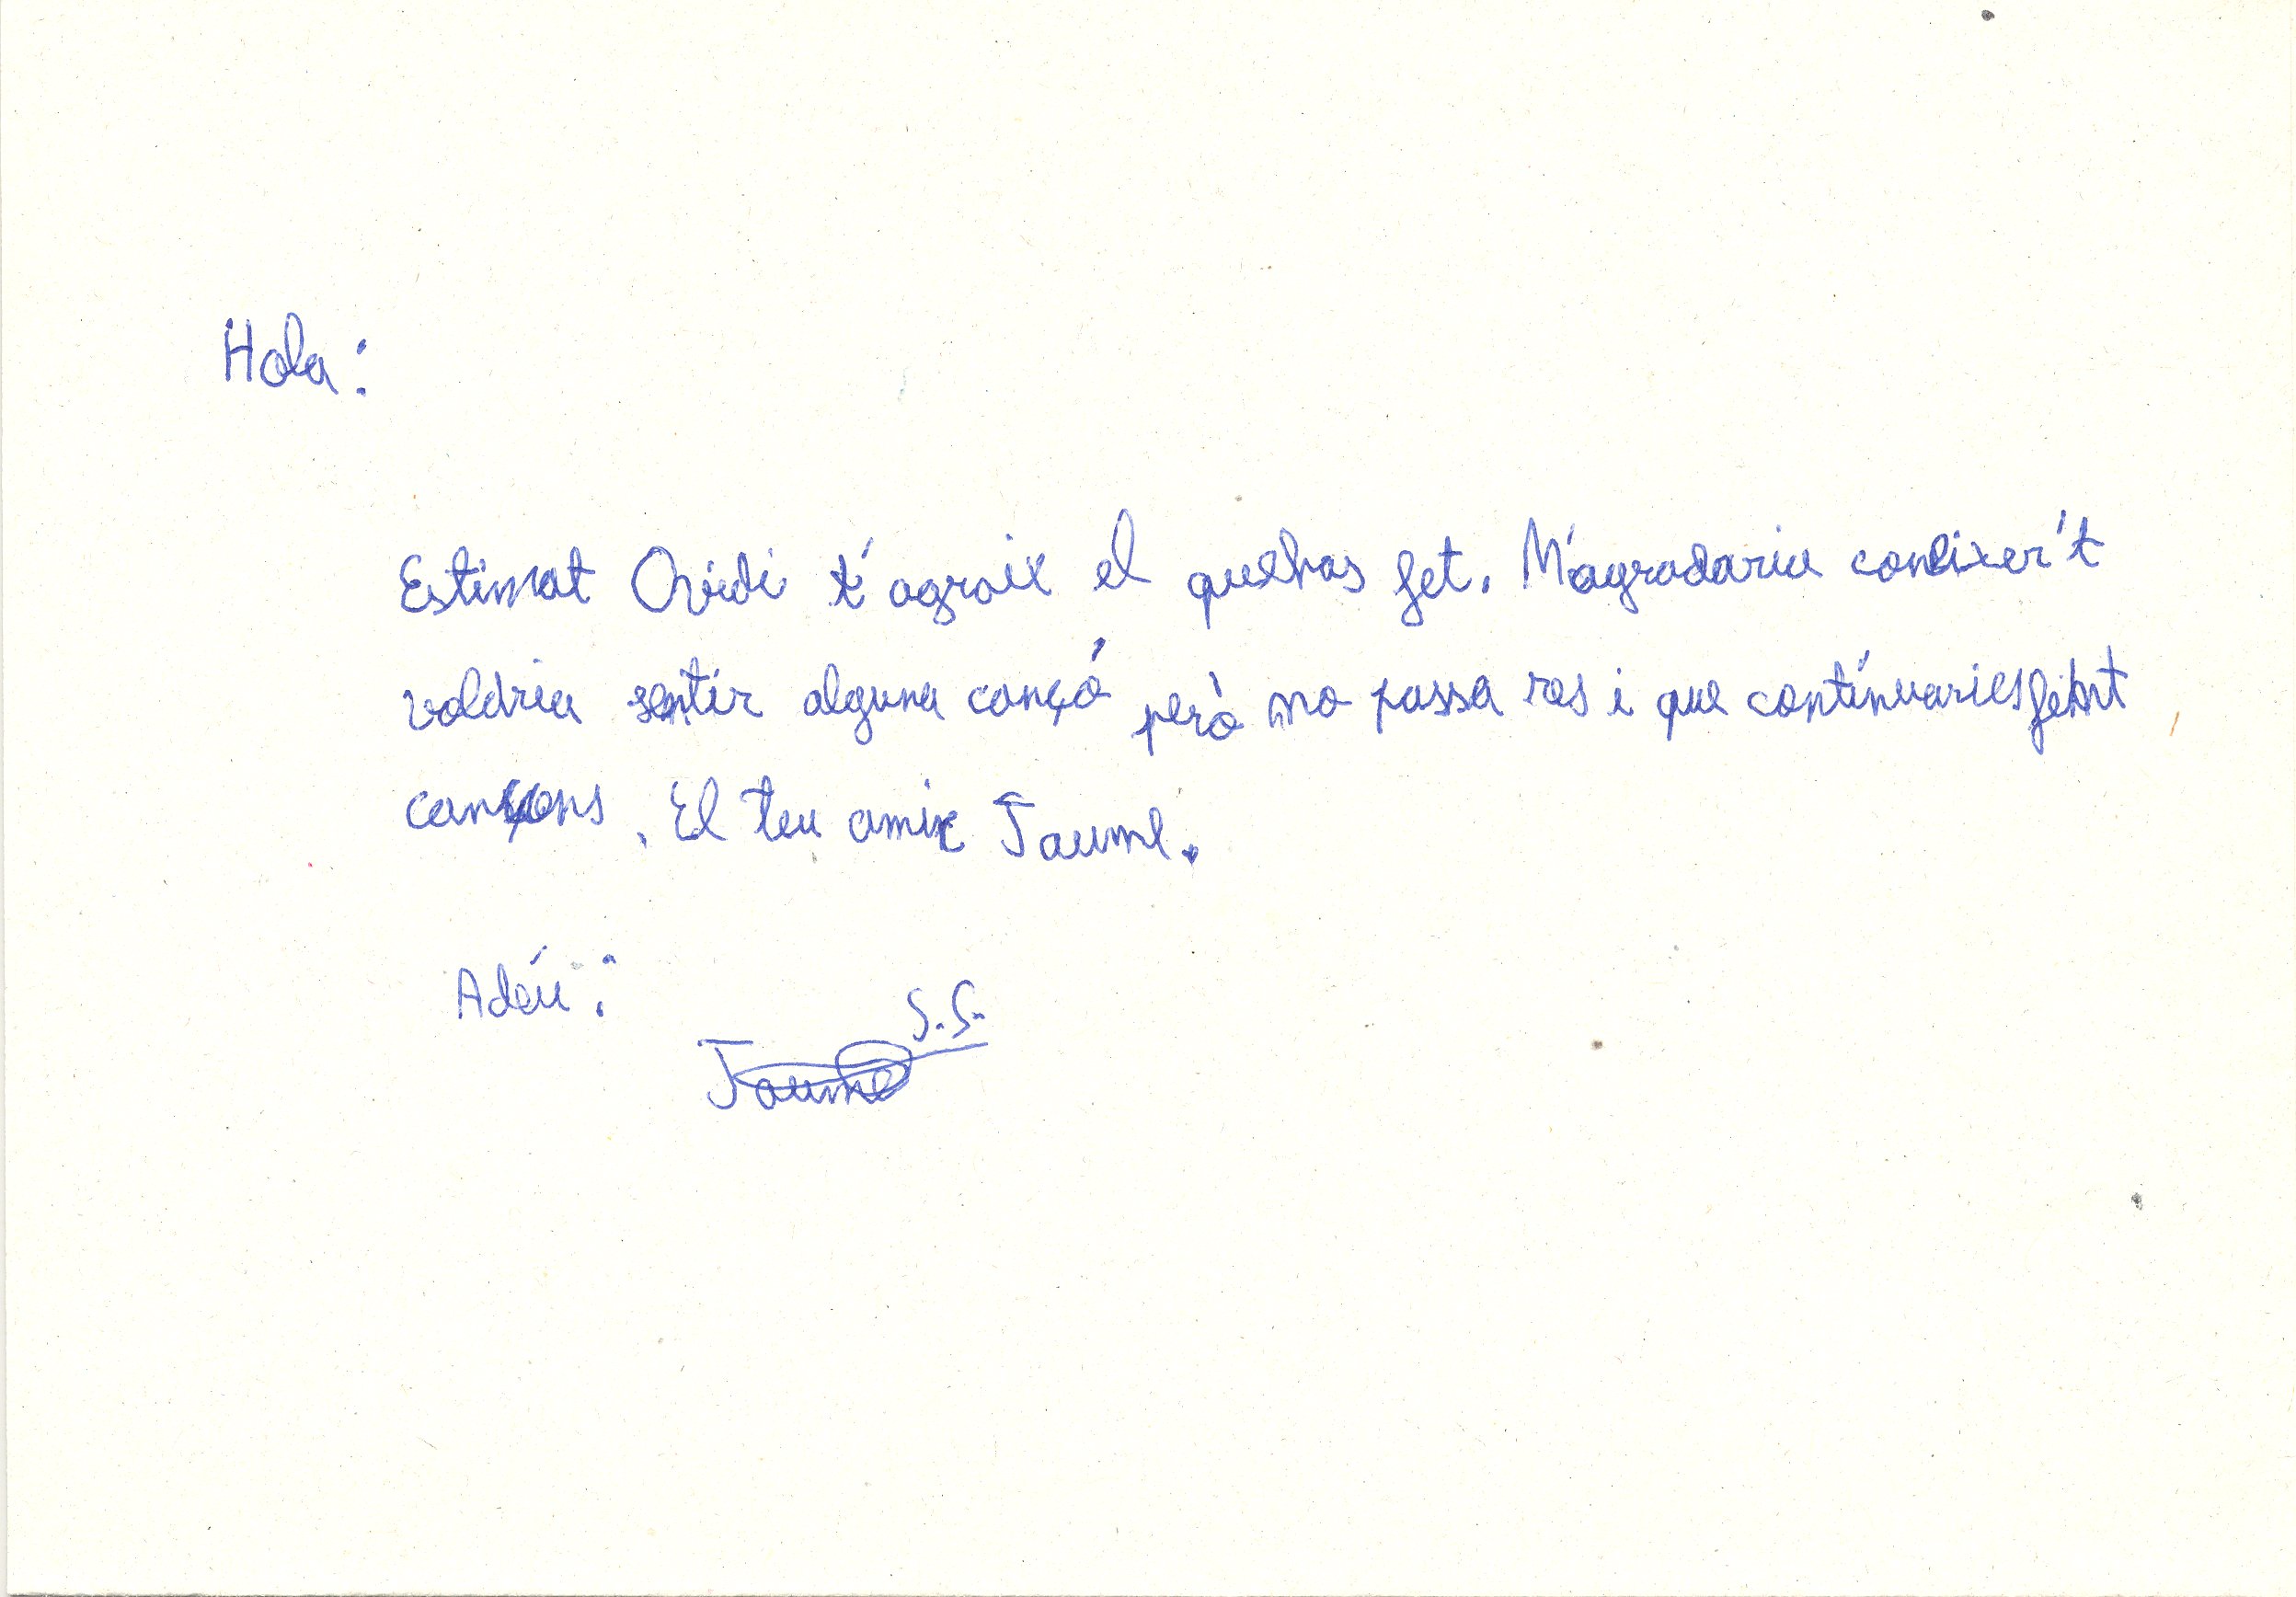 Hola:
Estimat Ovidi t'agraix el quehas fet. M'agradaria coneixer't
voldria sentir alguna cançó però no passa res i que contínuariesfent
cançons. El teu amic Jaume.
Adéu:
S.S.
Jaume